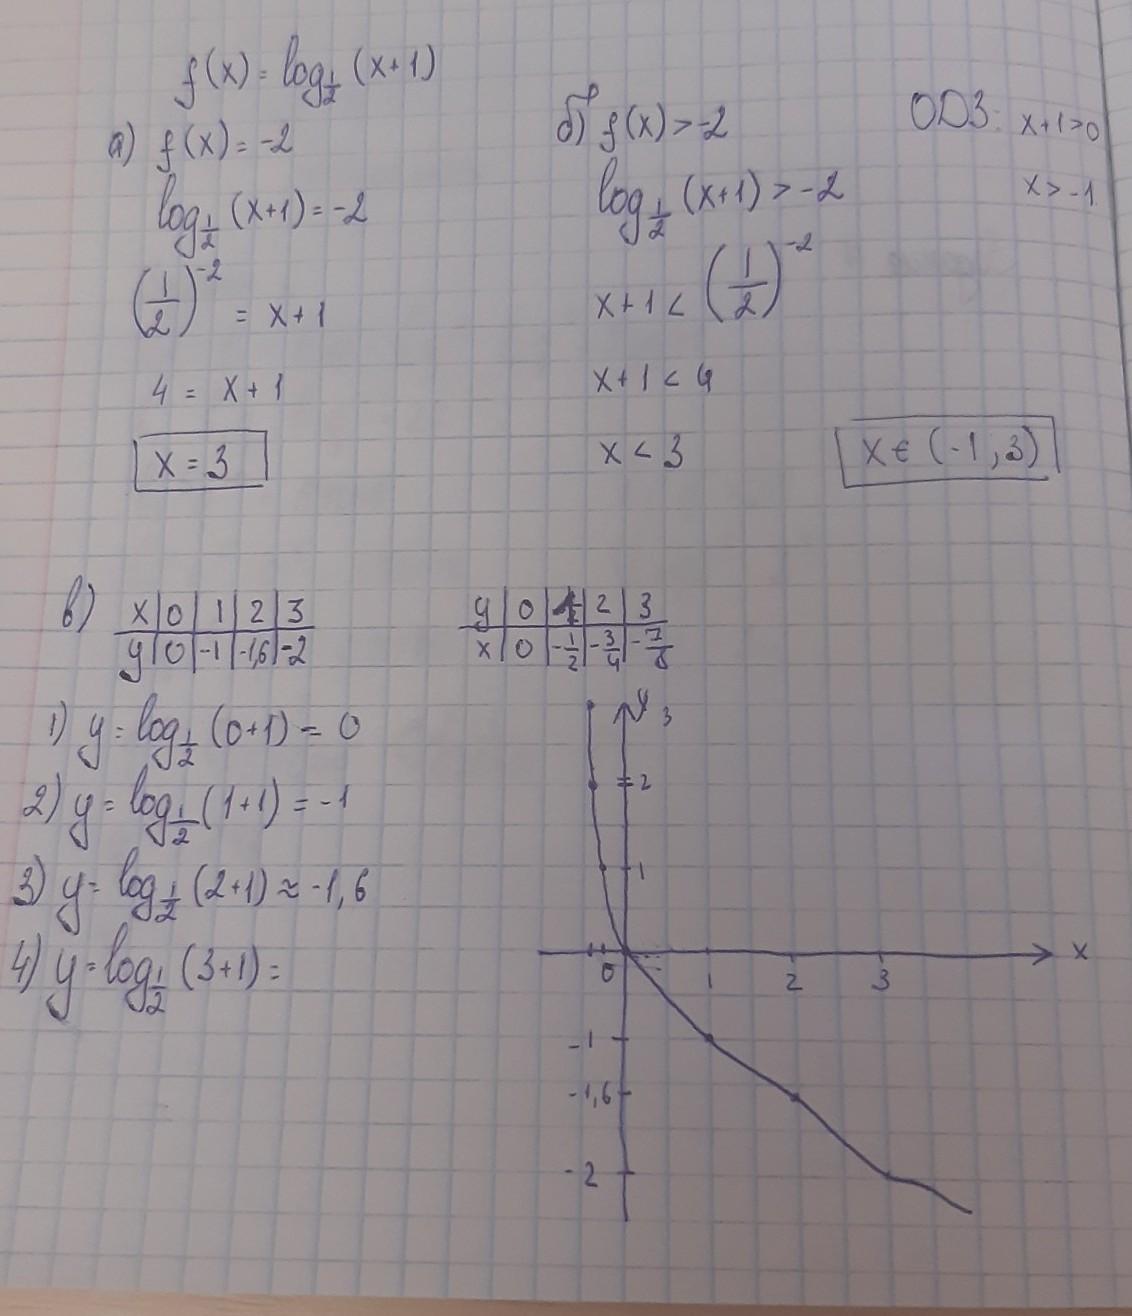 f(x) = log½ (x+1)
а) f(x) = -2
log½ (x+1) = -2
(1/2)⁻² = x+1
4 = x+1
x = 3
б) f(x) > -2
log½ (x+1) > -2
x+1 < (1/2)⁻²
x+1 < 4
x < 3
ОДЗ: x+1>0
x > -1
x ∈ (-1, 3)
в)
x | 0 | 1 | 2 | 3
y | 0 | -1 | -1,6 | -2
y | 0 | 1 | 2 | 3
x | 0 | -1/2 | -3/4 | -7/8
1) y = log½ (0+1) = 0
2) y = log½ (1+1) = -1
3) y = log½ (2+1) ≈ -1,6
4) y = log½ (3+1) =
y 3
2
1
0 1 2 3 x
-1
-1,6
-2